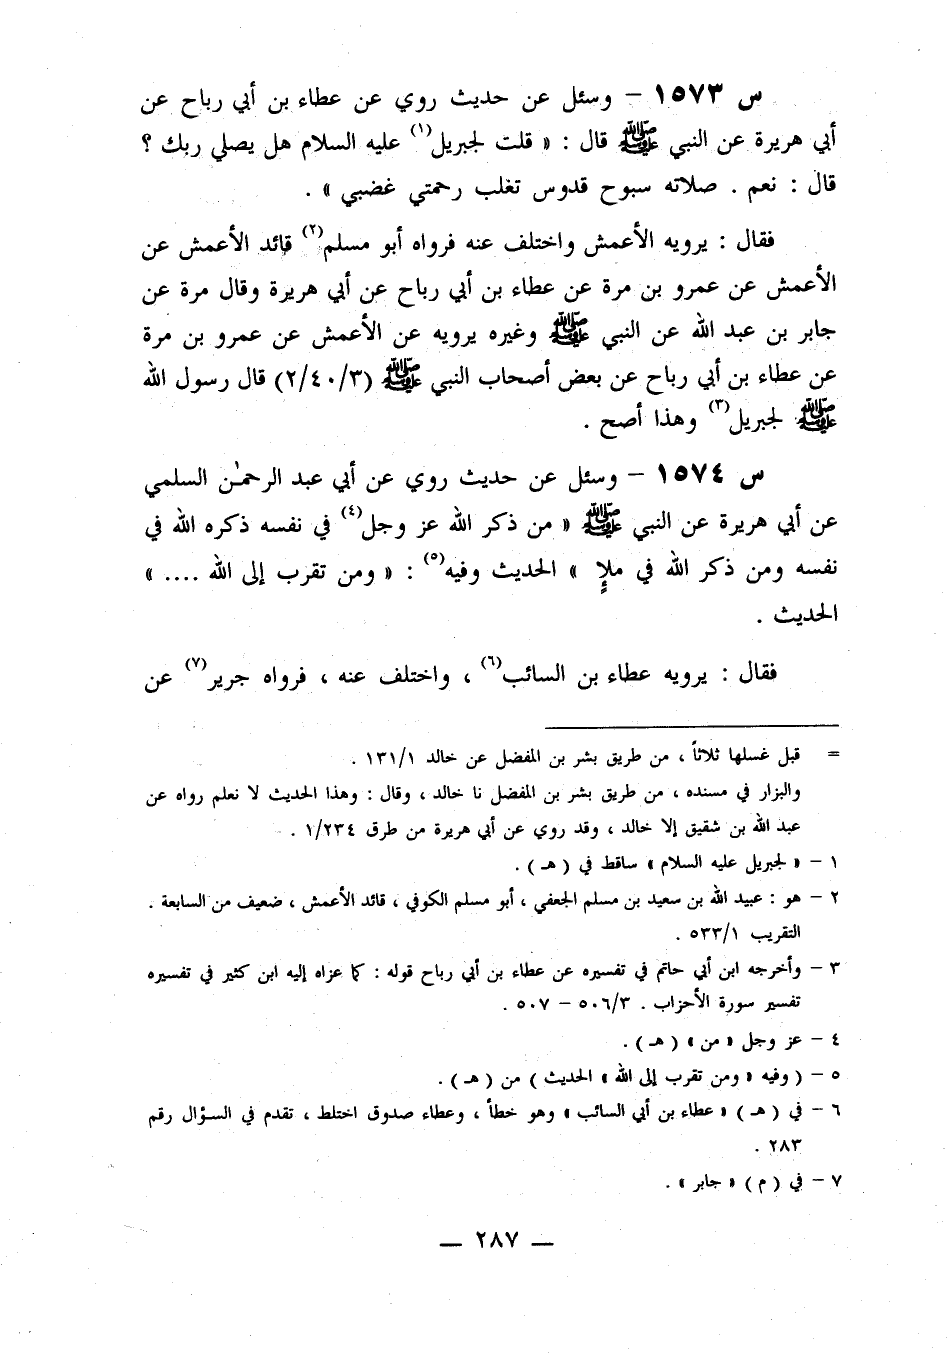 س ١٥٧٣ – وسئل عن حديث روي عن عطاء بن أبي رباح عن
أبي هريرة عن النبي ﷺ قال : « قلت لجبريل(١) عليه السلام هل يصلي ربك ؟
قال : نعم . صلاته سبوح قدوس تغلب رحمتي غضبي » .
فقال : يرويه الأعمش واختلف عنه فرواه أبو مسلم(٢) قائد الأعمش عن
الأعمش عن عمرو بن مرة عن عطاء بن أبي رباح عن أبي هريرة وقال مرة عن
جابر بن عبد الله عن النبي ﷺ وغيره يرويه عن الأعمش عن عمرو بن مرة
عن عطاء بن أبي رباح عن بعض أصحاب النبي ﷺ (٢/٤٠/٣) قال رسول الله
ﷺ لجبريل(٣) وهذا أصح .
س ١٥٧٤ – وسئل عن حديث روي عن أبي عبد الرحمٰن السلمي
عن أبي هريرة عن النبي ﷺ « من ذكر الله عز وجل(٤) في نفسه ذكره الله في
نفسه ومن ذكر الله في ملإٍ » الحديث وفيه(٥) : « ومن تقرب إلى الله .... »
الحديث .
فقال : يرويه عطاء بن السائب(٦) ، واختلف عنه ، فرواه جرير(٧) عن
= قبل غسلها ثلاثاً ، من طريق بشر بن المفضل عن خالد ١٣١/١ .
والبزار في مسنده ، من طريق بشر بن المفضل نا خالد ، وقال : وهذا الحديث لا نعلم رواه عن
عبد الله بن شقيق إلا خالد ، وقد روي عن أبي هريرة من طرق ١/٢٣٤ .
١ – « لجبريل عليه السلام » ساقط في ( هـ ) .
٢ – هو : عبيد الله بن سعيد بن مسلم الجعفي ، أبو مسلم الكوفي ، قائد الأعمش ، ضعيف من السابعة .
التقريب ٥٣٣/١ .
٣ – وأخرجه ابن أبي حاتم في تفسيره عن عطاء بن أبي رباح قوله : كما عزاه إليه ابن كثير في تفسيره
تفسير سورة الأحزاب . ٥٠٦/٣ – ٥٠٧ .
٤ – عز وجل « من » ( هـ ) .
٥ – ( وفيه « ومن تقرب إلى الله » الحديث ) من ( هـ ) .
٦ – في ( هـ ) « عطاء بن أبي السائب » وهو خطأ ، وعطاء صدوق اختلط ، تقدم في السؤال رقم
٢٨٣ .
٧ – في ( م ) « جابر » .
— ٢٨٧ —